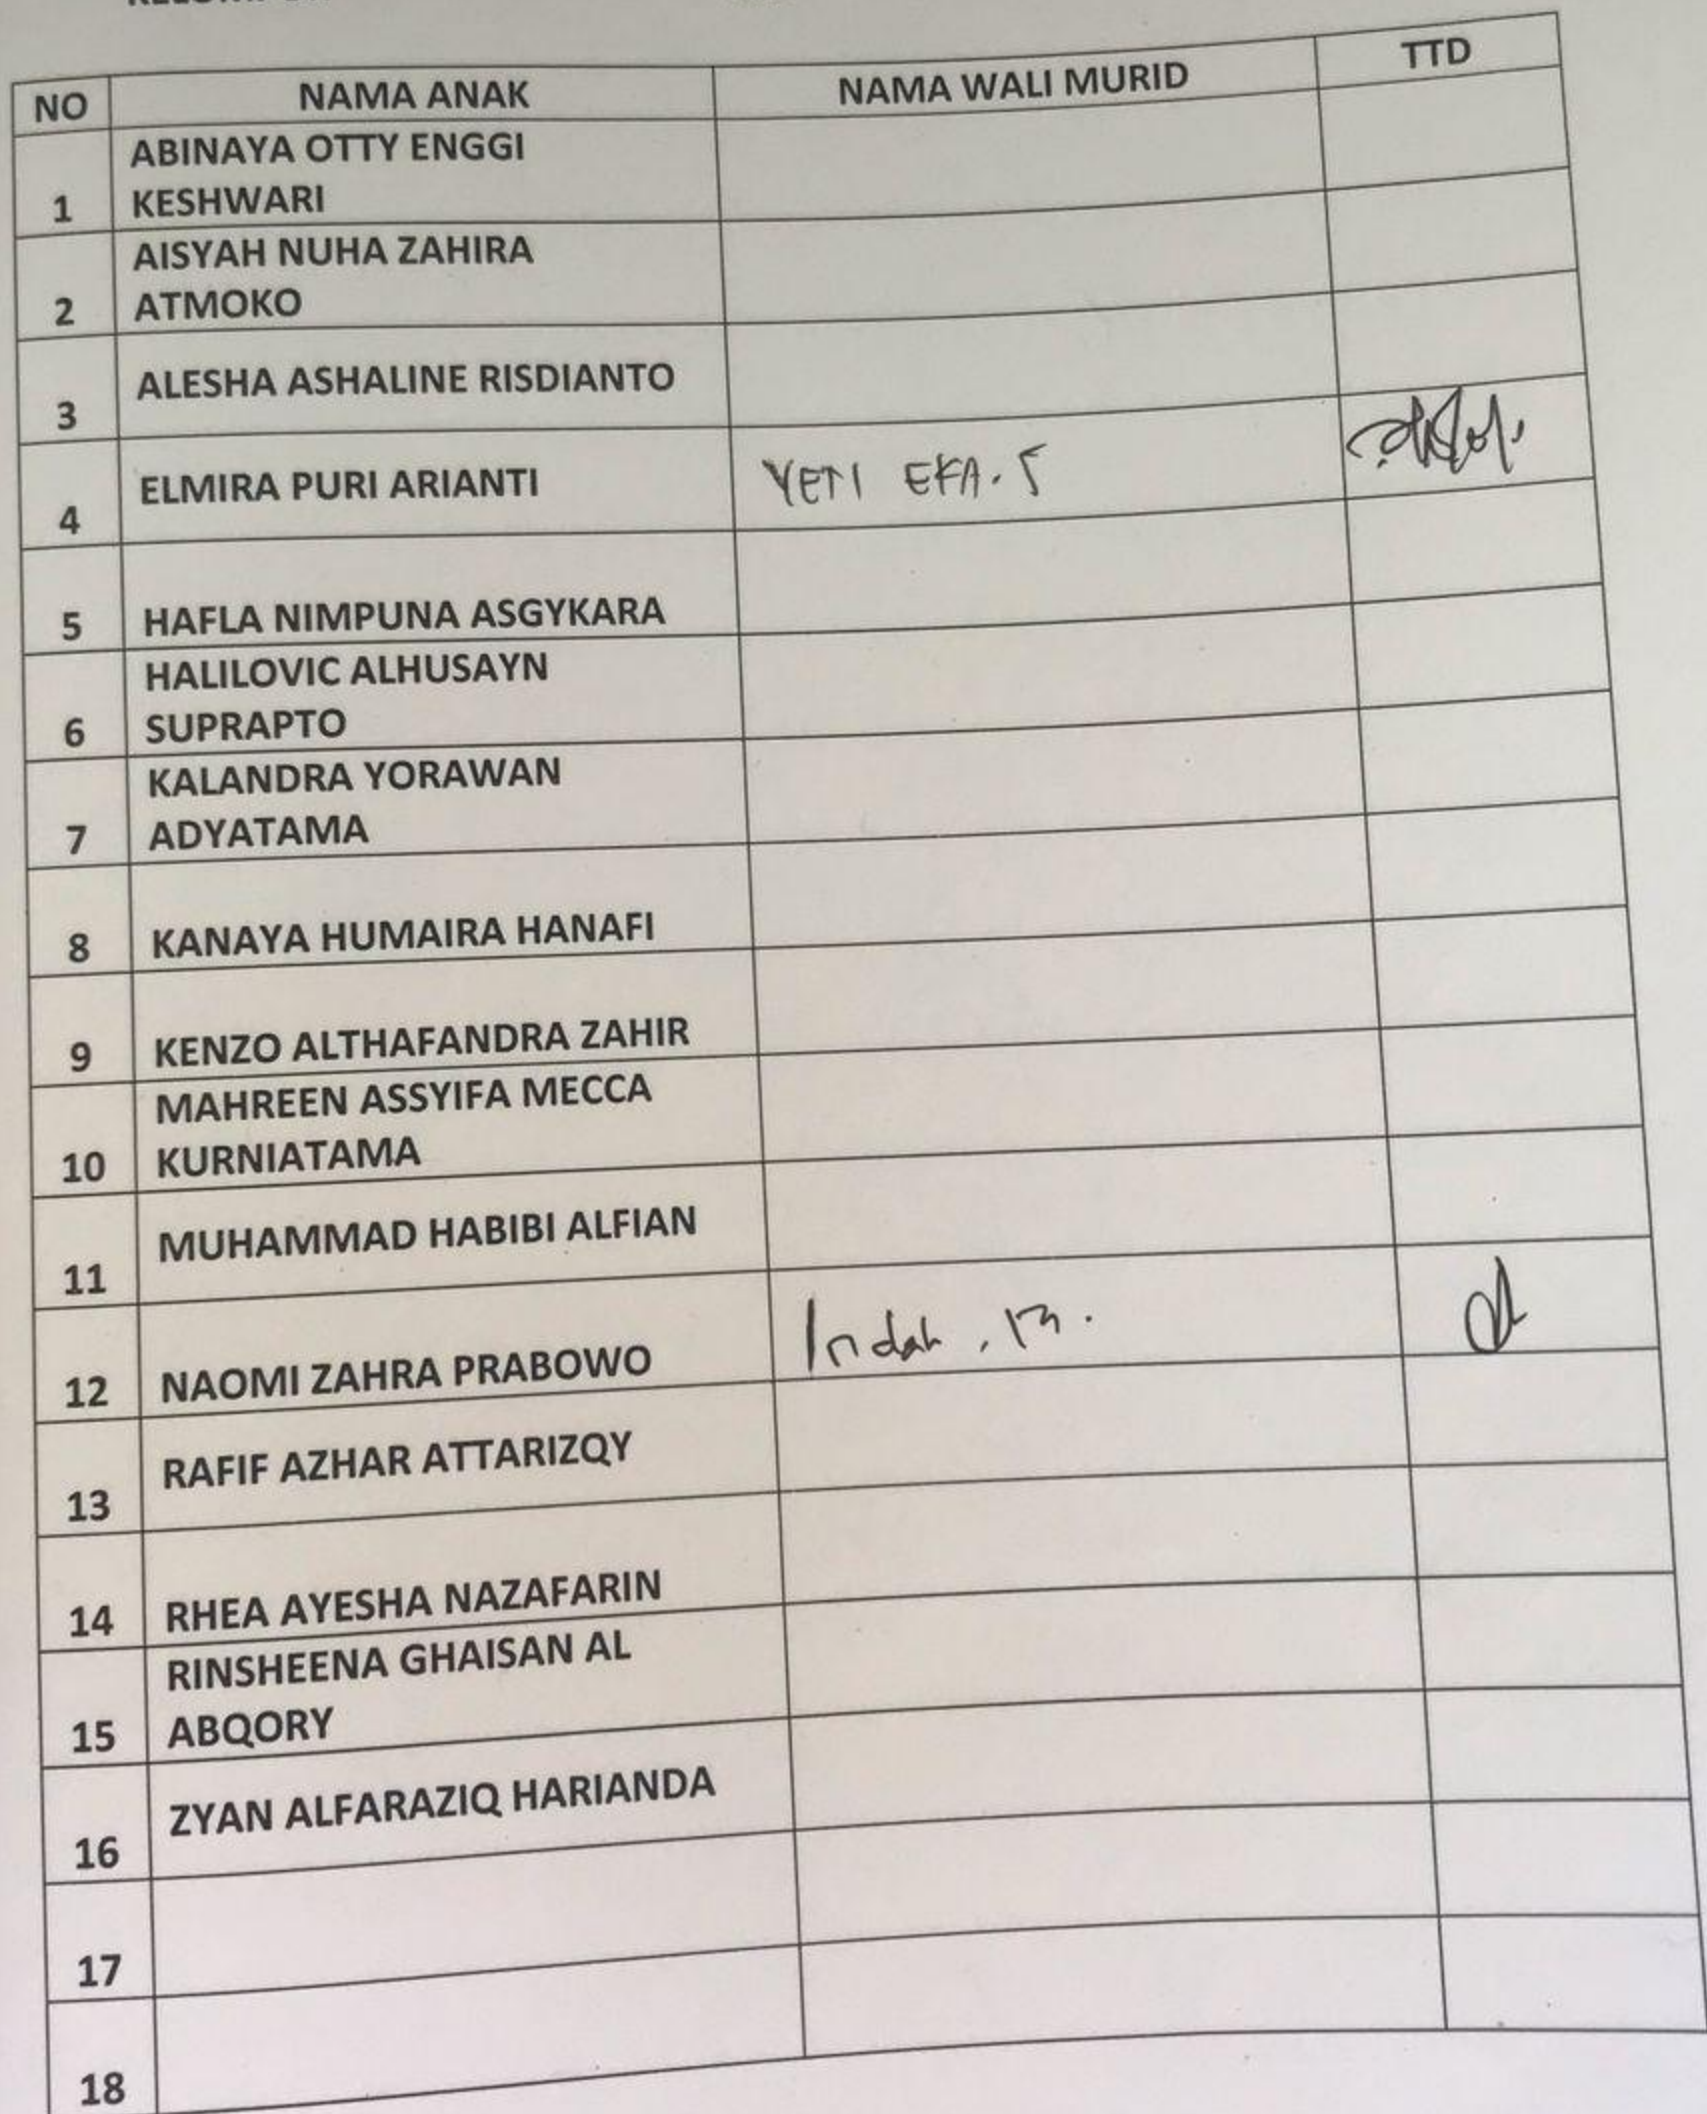 NO NAMA ANAK NAMA WALI MURID TTD
ABINAYA OTTY ENGGI
1 KESHWARI
AISYAH NUHA ZAHIRA
2 ATMOKO
3 ALESHA ASHALINE RISDIANTO
4 ELMIRA PURI ARIANTI YETI EKA. S
5 HAFLA NIMPUNA ASGYKARA
HALILOVIC ALHUSAYN
6 SUPRAPTO
KALANDRA YORAWAN
7 ADYATAMA
8 KANAYA HUMAIRA HANAFI
9 KENZO ALTHAFANDRA ZAHIR
MAHREEN ASSYIFA MECCA
10 KURNIATAMA
11 MUHAMMAD HABIBI ALFIAN
12 NAOMI ZAHRA PRABOWO Indah
13 RAFIF AZHAR ATTARIZQY
14 RHEA AYESHA NAZAFARIN
RINSHEENA GHAISAN AL
15 ABQORY
16 ZYAN ALFARAZIQ HARIANDA
17
18